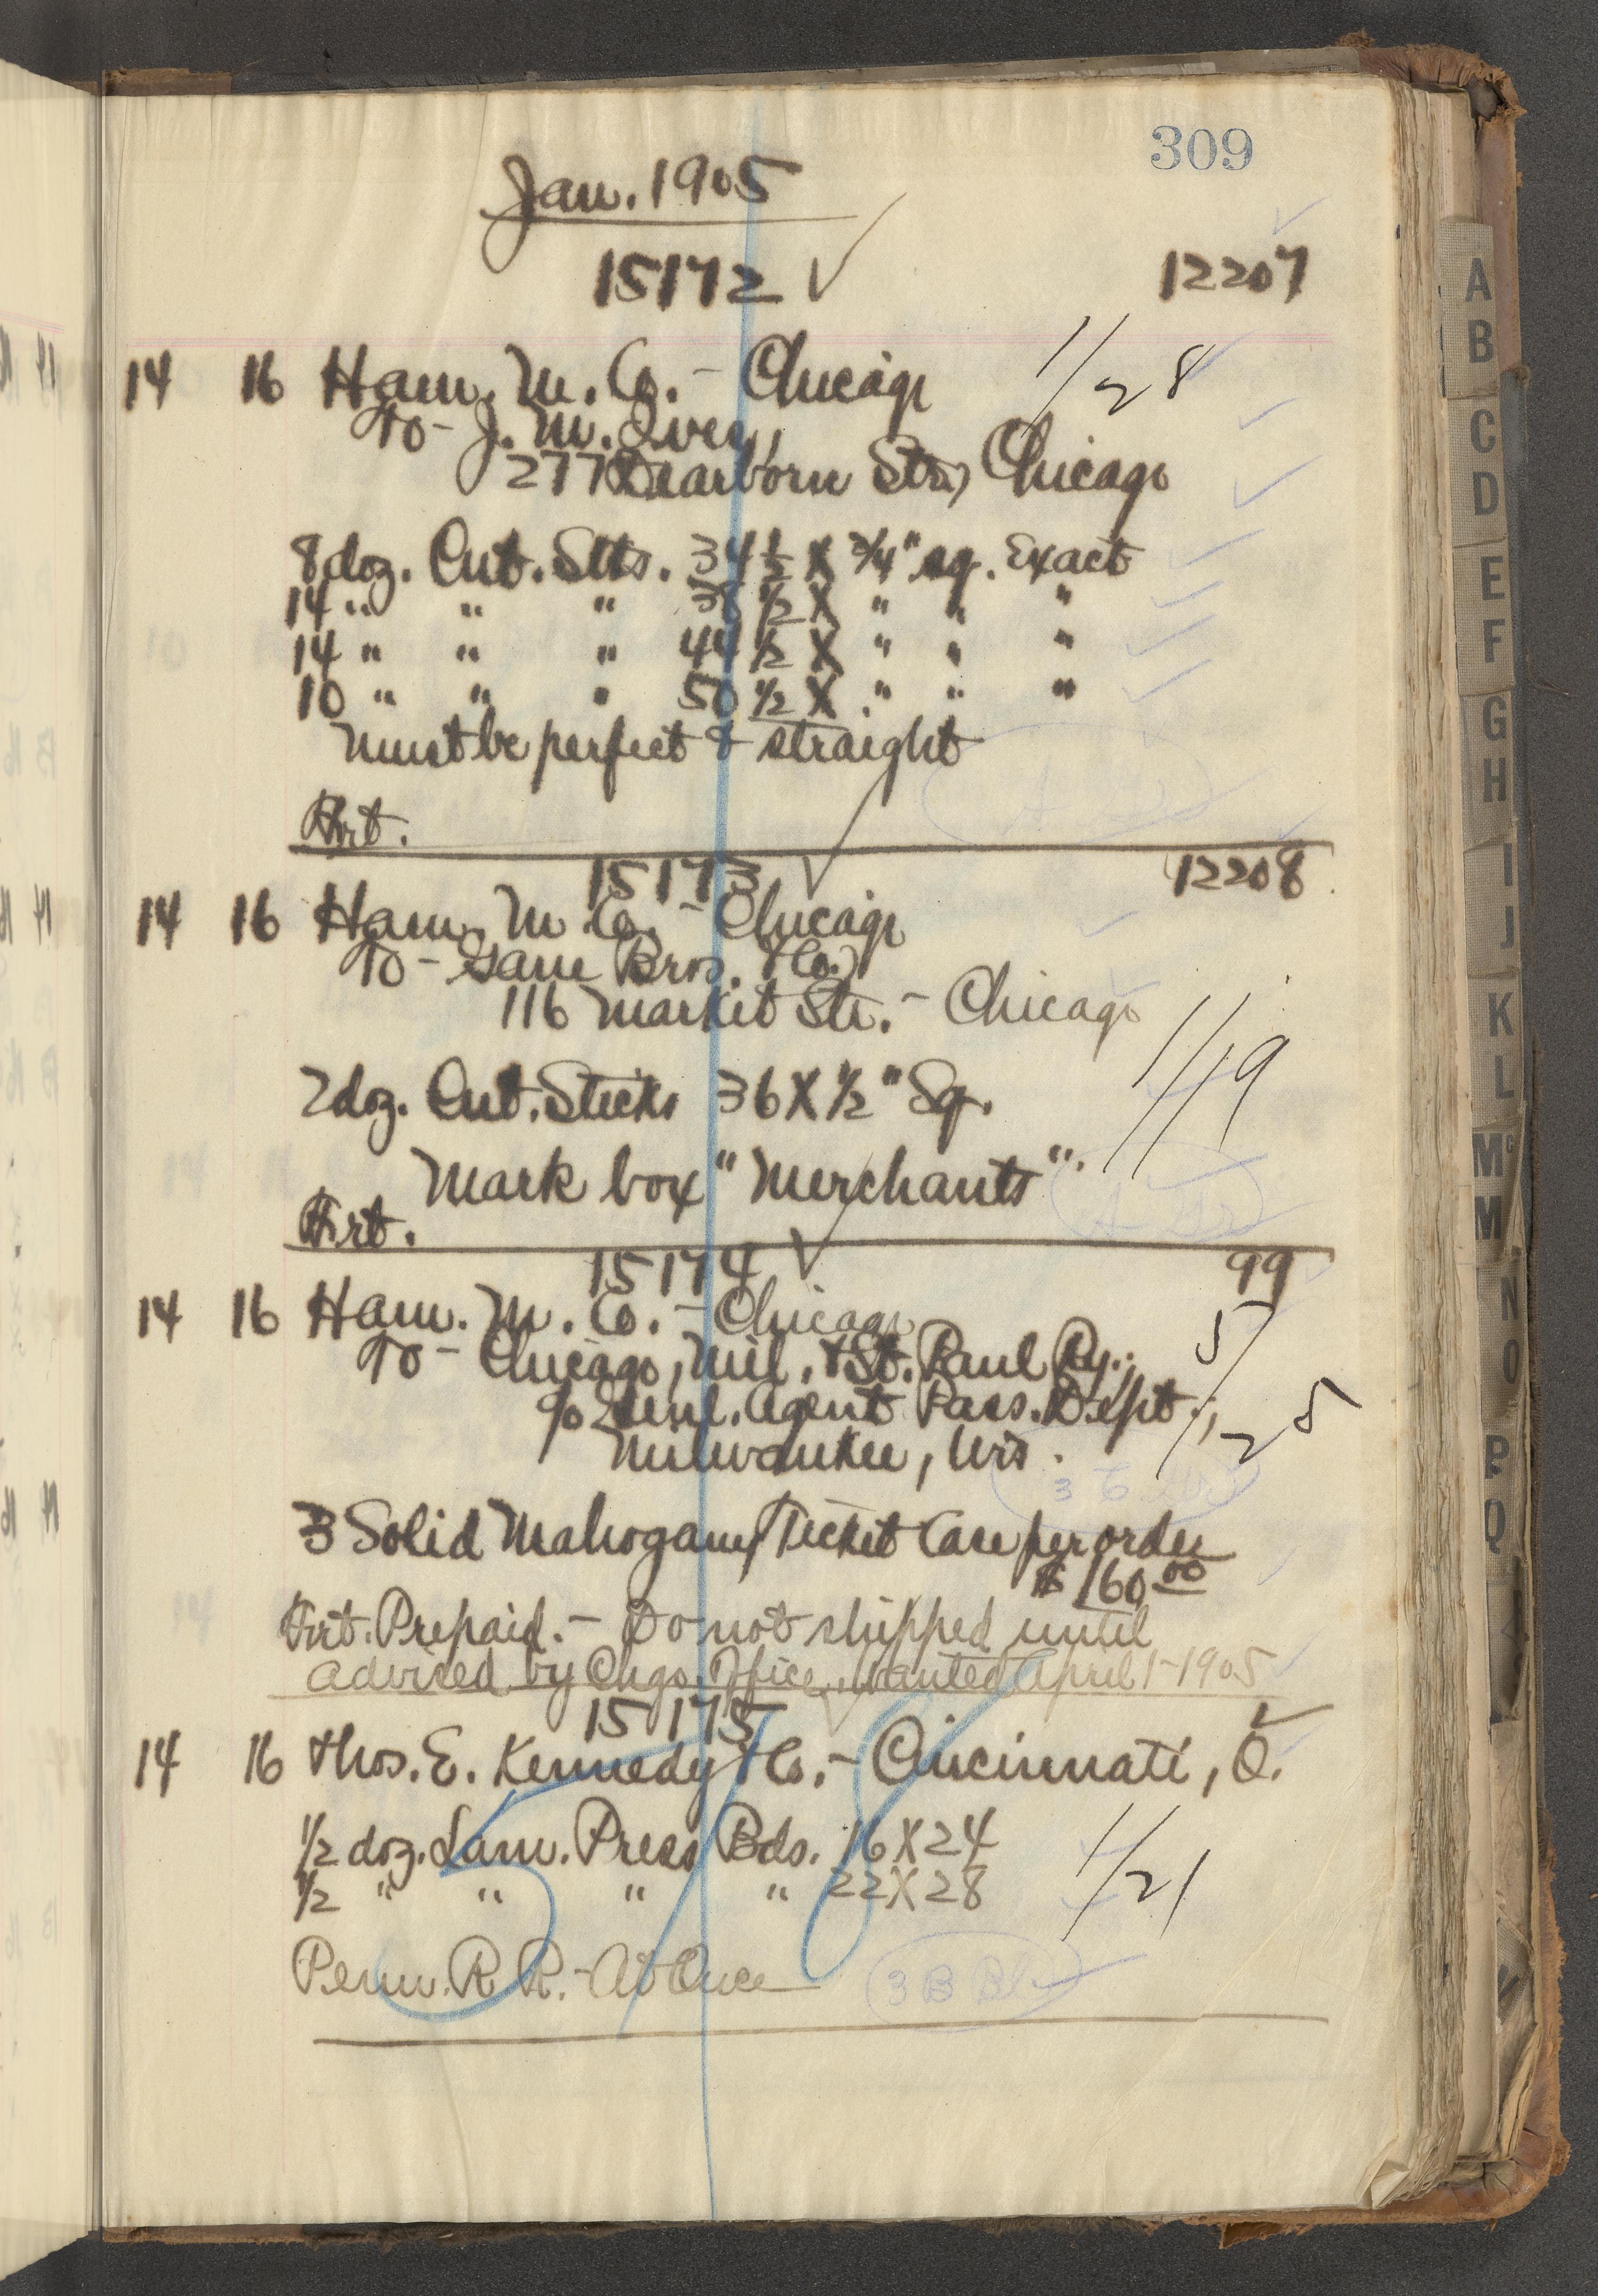 309
Jan. 1905
15172 12207
14 16 Ham. M. Co. - Chicago 1/28
To - J. M. Ivey,
277 Dearborn Str., Chicago
8 doz. Cut. Stks. 34 1/2 X 3/4" sq. Exact
14 " " " 38 1/2 X " " "
14 " " " 44 1/2 X " " "
10 " " " 50 1/2 X " " "
Must be perfect & straight
Frt.
15173 12208
14 16 Ham. M Co. - Chicago
To - Gane Bros. & Co.,
116 Market Str. - Chicago
1/19
2 doz. Cut. Sticks 36 X 1/2" Sq.
Mark box "Merchants".
Frt.
15174 99
14 16 Ham. M. Co. - Chicago
To - Chicago, Mil. & St. Paul Ry.,
c/o Genl. Agent Pass. Dept.,
Milwaukee, Wis.
5/25
3 Solid Mahogany Ticket Case per order
$160.00
Frt. Prepaid. - Do not shipped until
advised by Chgo. Office, wanted April 1-1905
15175
14 16 Thos. E. Kennedy & Co. - Cincinnati, O.
1/2 doz. Lam. Press Bds. 16 X 24
1/2 " " " " 22 X 28
1/21
Penn. R R. - At Once
3 B Bls
5/8
A
B
C
D
E
F
G
H
I
J
K
L
Mc
M
N
O
P
Q